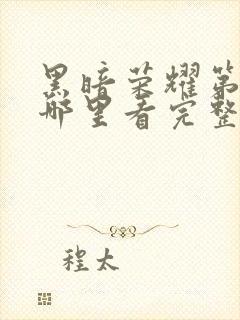 黑暗荣耀第
哪里看完整
程太